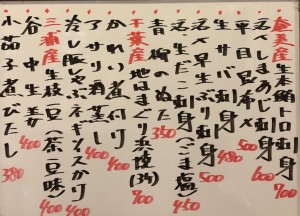 奄美産 生本鮪トロ刺身 700
活〆しまあじ刺身 600
平目昆布〆 500
生サバ刺身 480
活〆早生ぶり刺身 500
活生だこ刺身(ごま塩) 450
青柳のぬた 350
千葉産 地はまぐり浜焼(3ヶ) 700
かれい煮付け 400
アサリ酒蒸し 400
冷し豚しゃぶネギイスかり 400
三浦産 生枝豆(茶豆味) 400
谷中生姜 400
小茄子煮びたし 380